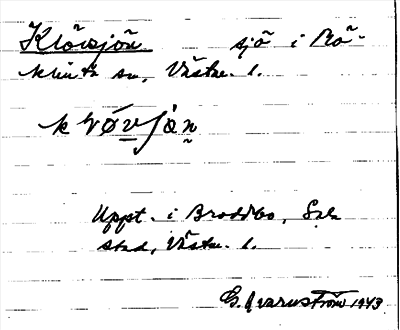 Klövsjön sjö i Ro-
klints sn, Västm. l.
Uppt. i Broddbo, Sala
stad, Västm. l.
G. Qvarnström 1943